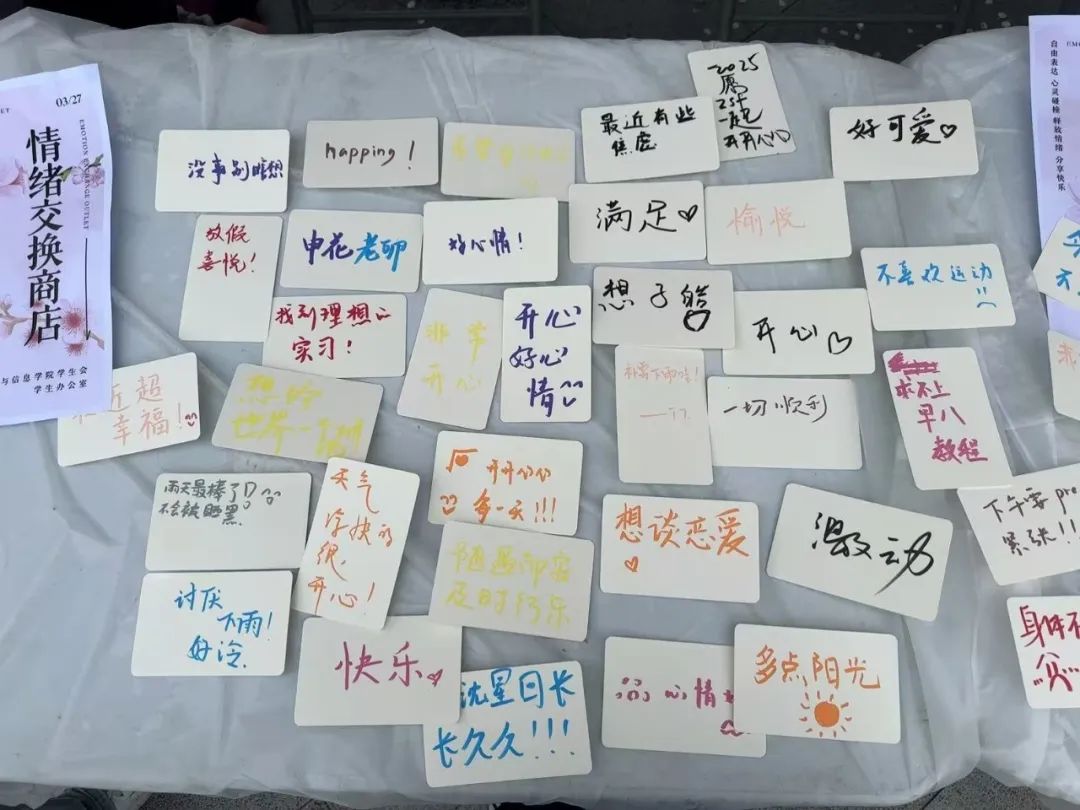 03/27
EMOTION EXCHANGE OUTLET
情绪交换商店
与信息学院学生会
学生办公室
自由表达 心灵碰撞 释放情绪 分享快乐
2025
愿
一起
开开心心
最近有些
焦虑
好可爱
没事别瞎想
happing!
满足
愉悦
放假
喜悦!
申花老卵
好心情!
不喜欢运动
找到理想
实习!
非常
开心
开心
好心
情
想
开心
求不上
早八
教程
近超
幸福!
想吃
世界一
一切顺利
开开心心
每一天!!!
雨天最棒了
不会被晒黑
天气
很
开心!
随遇而安
及时行乐
想谈恋爱
激动
下午要pre
紧张!!
讨厌
下雨!
好冷.
快乐
沈星回长
长久久!!!
心情
多点阳光
身体不